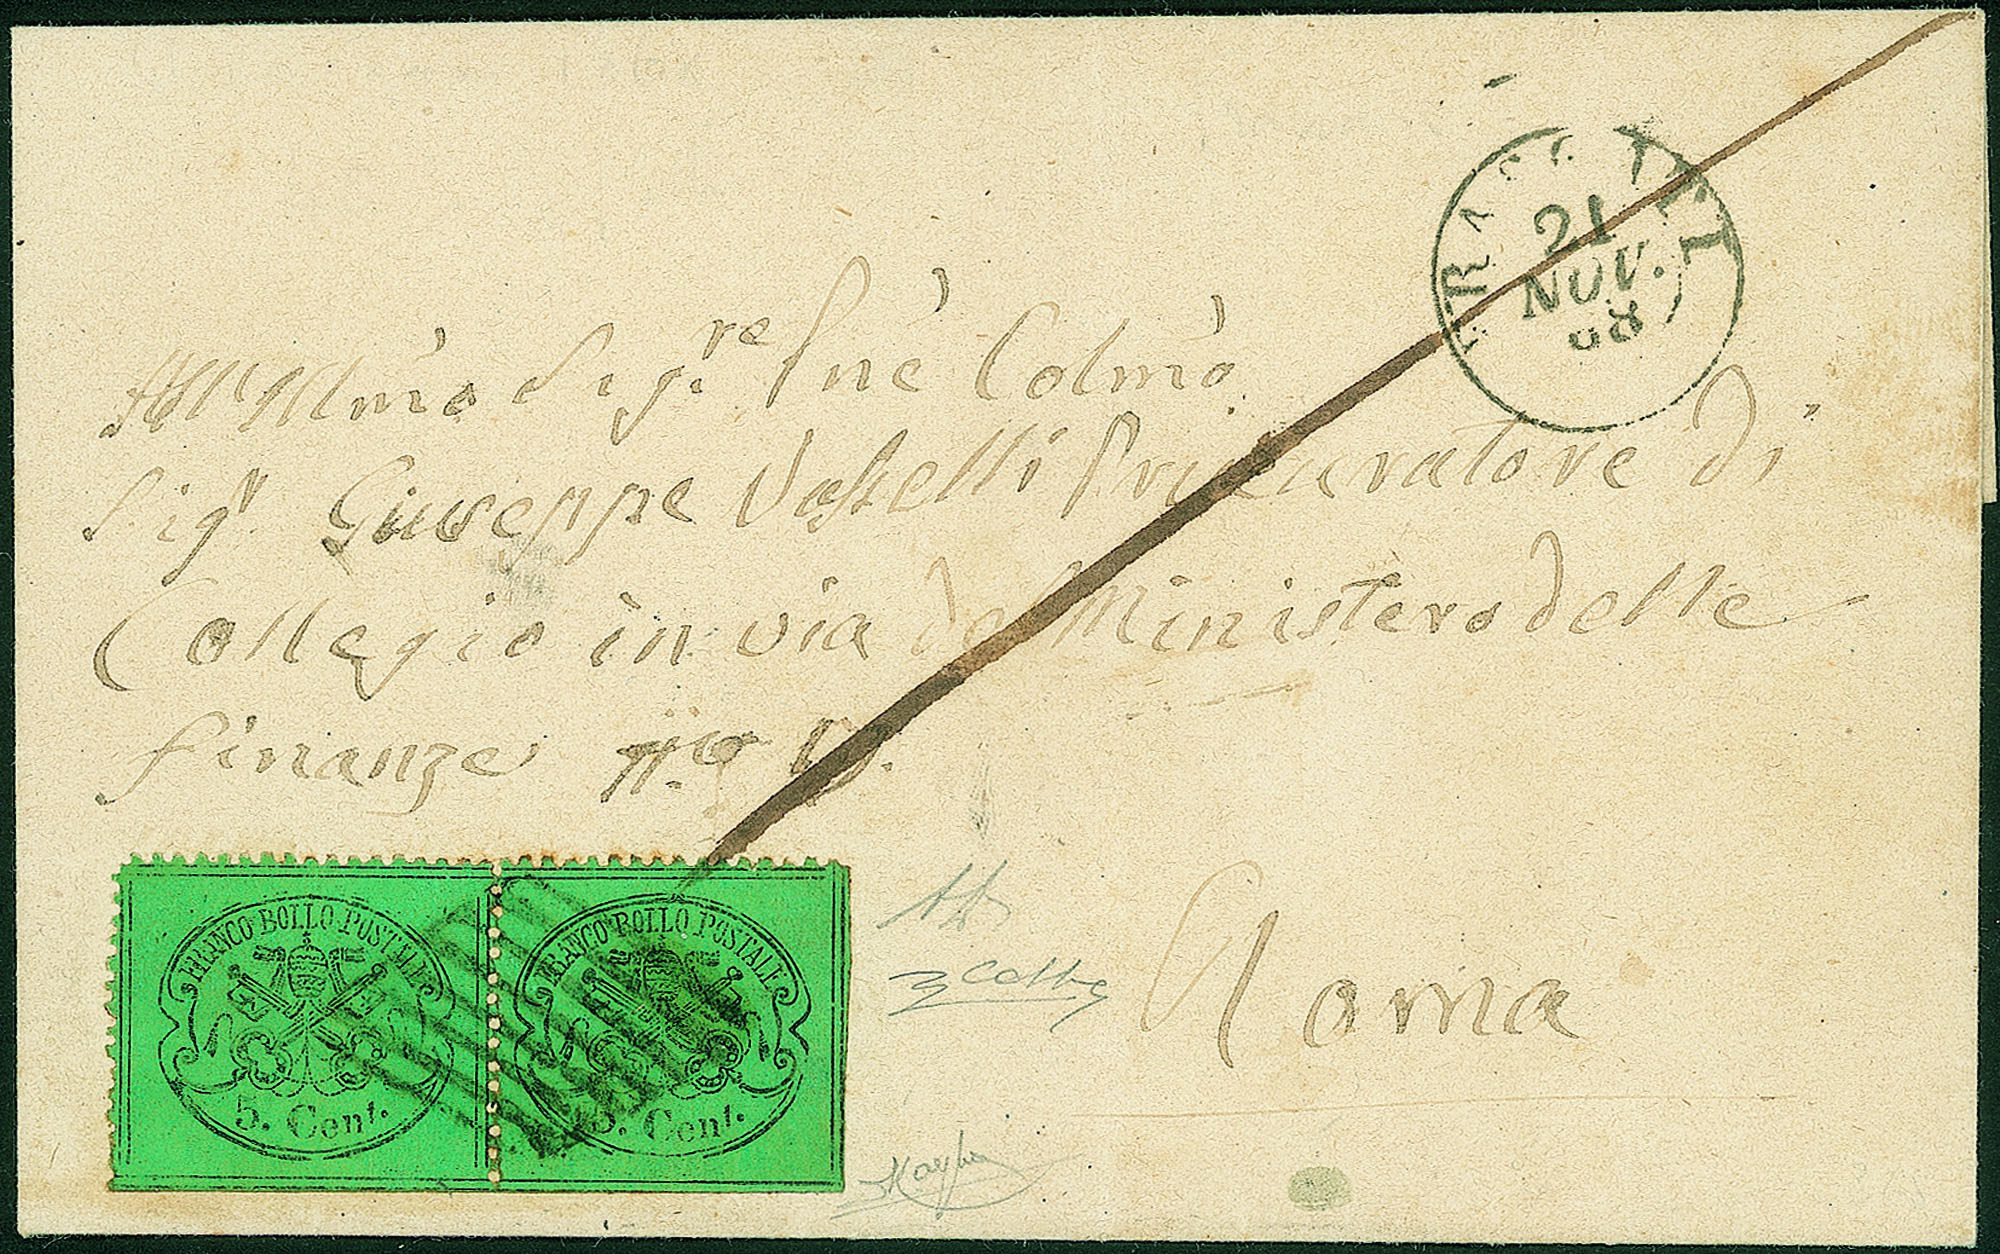 FRASCATI
21
NOV.
68
All'Illmo Sigre Pne Colmo
Sigr Giuseppe Procuratore di
Collegio in via del Ministero delle
Finanze No
Roma
FRANCO BOLLO POSTALE
5. Cent.
FRANCO BOLLO POSTALE
5. Cent.